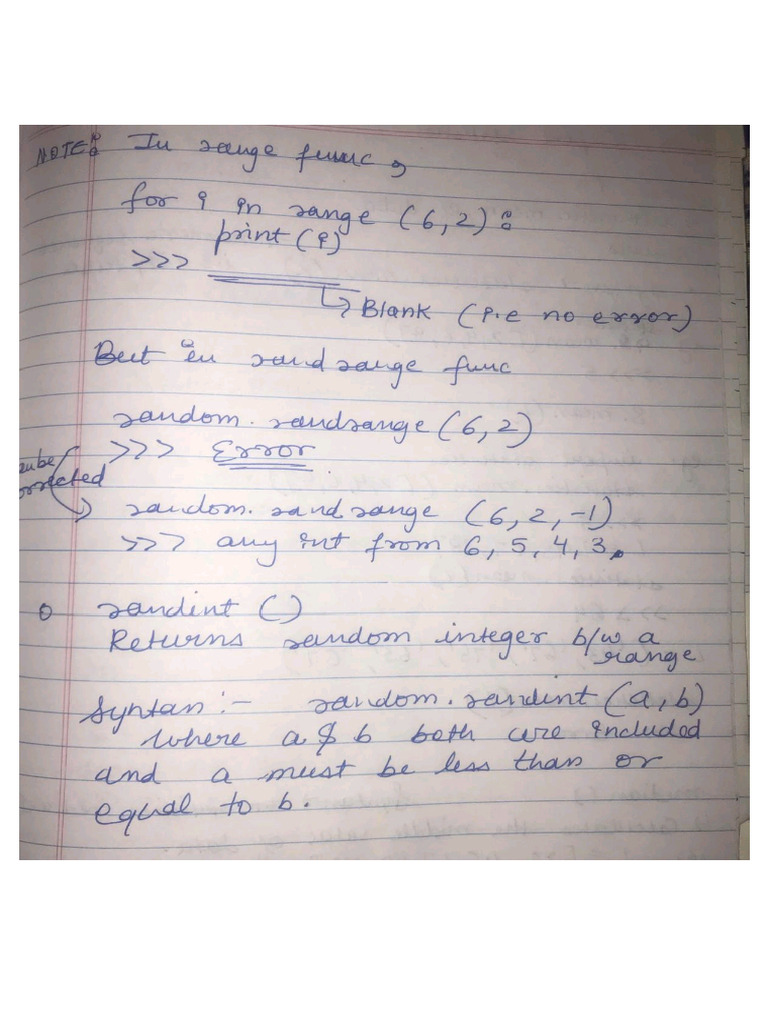 NOTE: In range func,
for i in range (6,2):
print(i)
>>>
↳ Blank (i.e no error)
But in randrange func
random. randrange (6,2)
>>> Error
random. randrange (6, 2, -1)
>>> any int from 6, 5, 4, 3.
o randint ()
Returns random integer b/w a
range
Syntax :- random.randint (a, b)
where a & b both are included
and a must be less than or
equal to b.